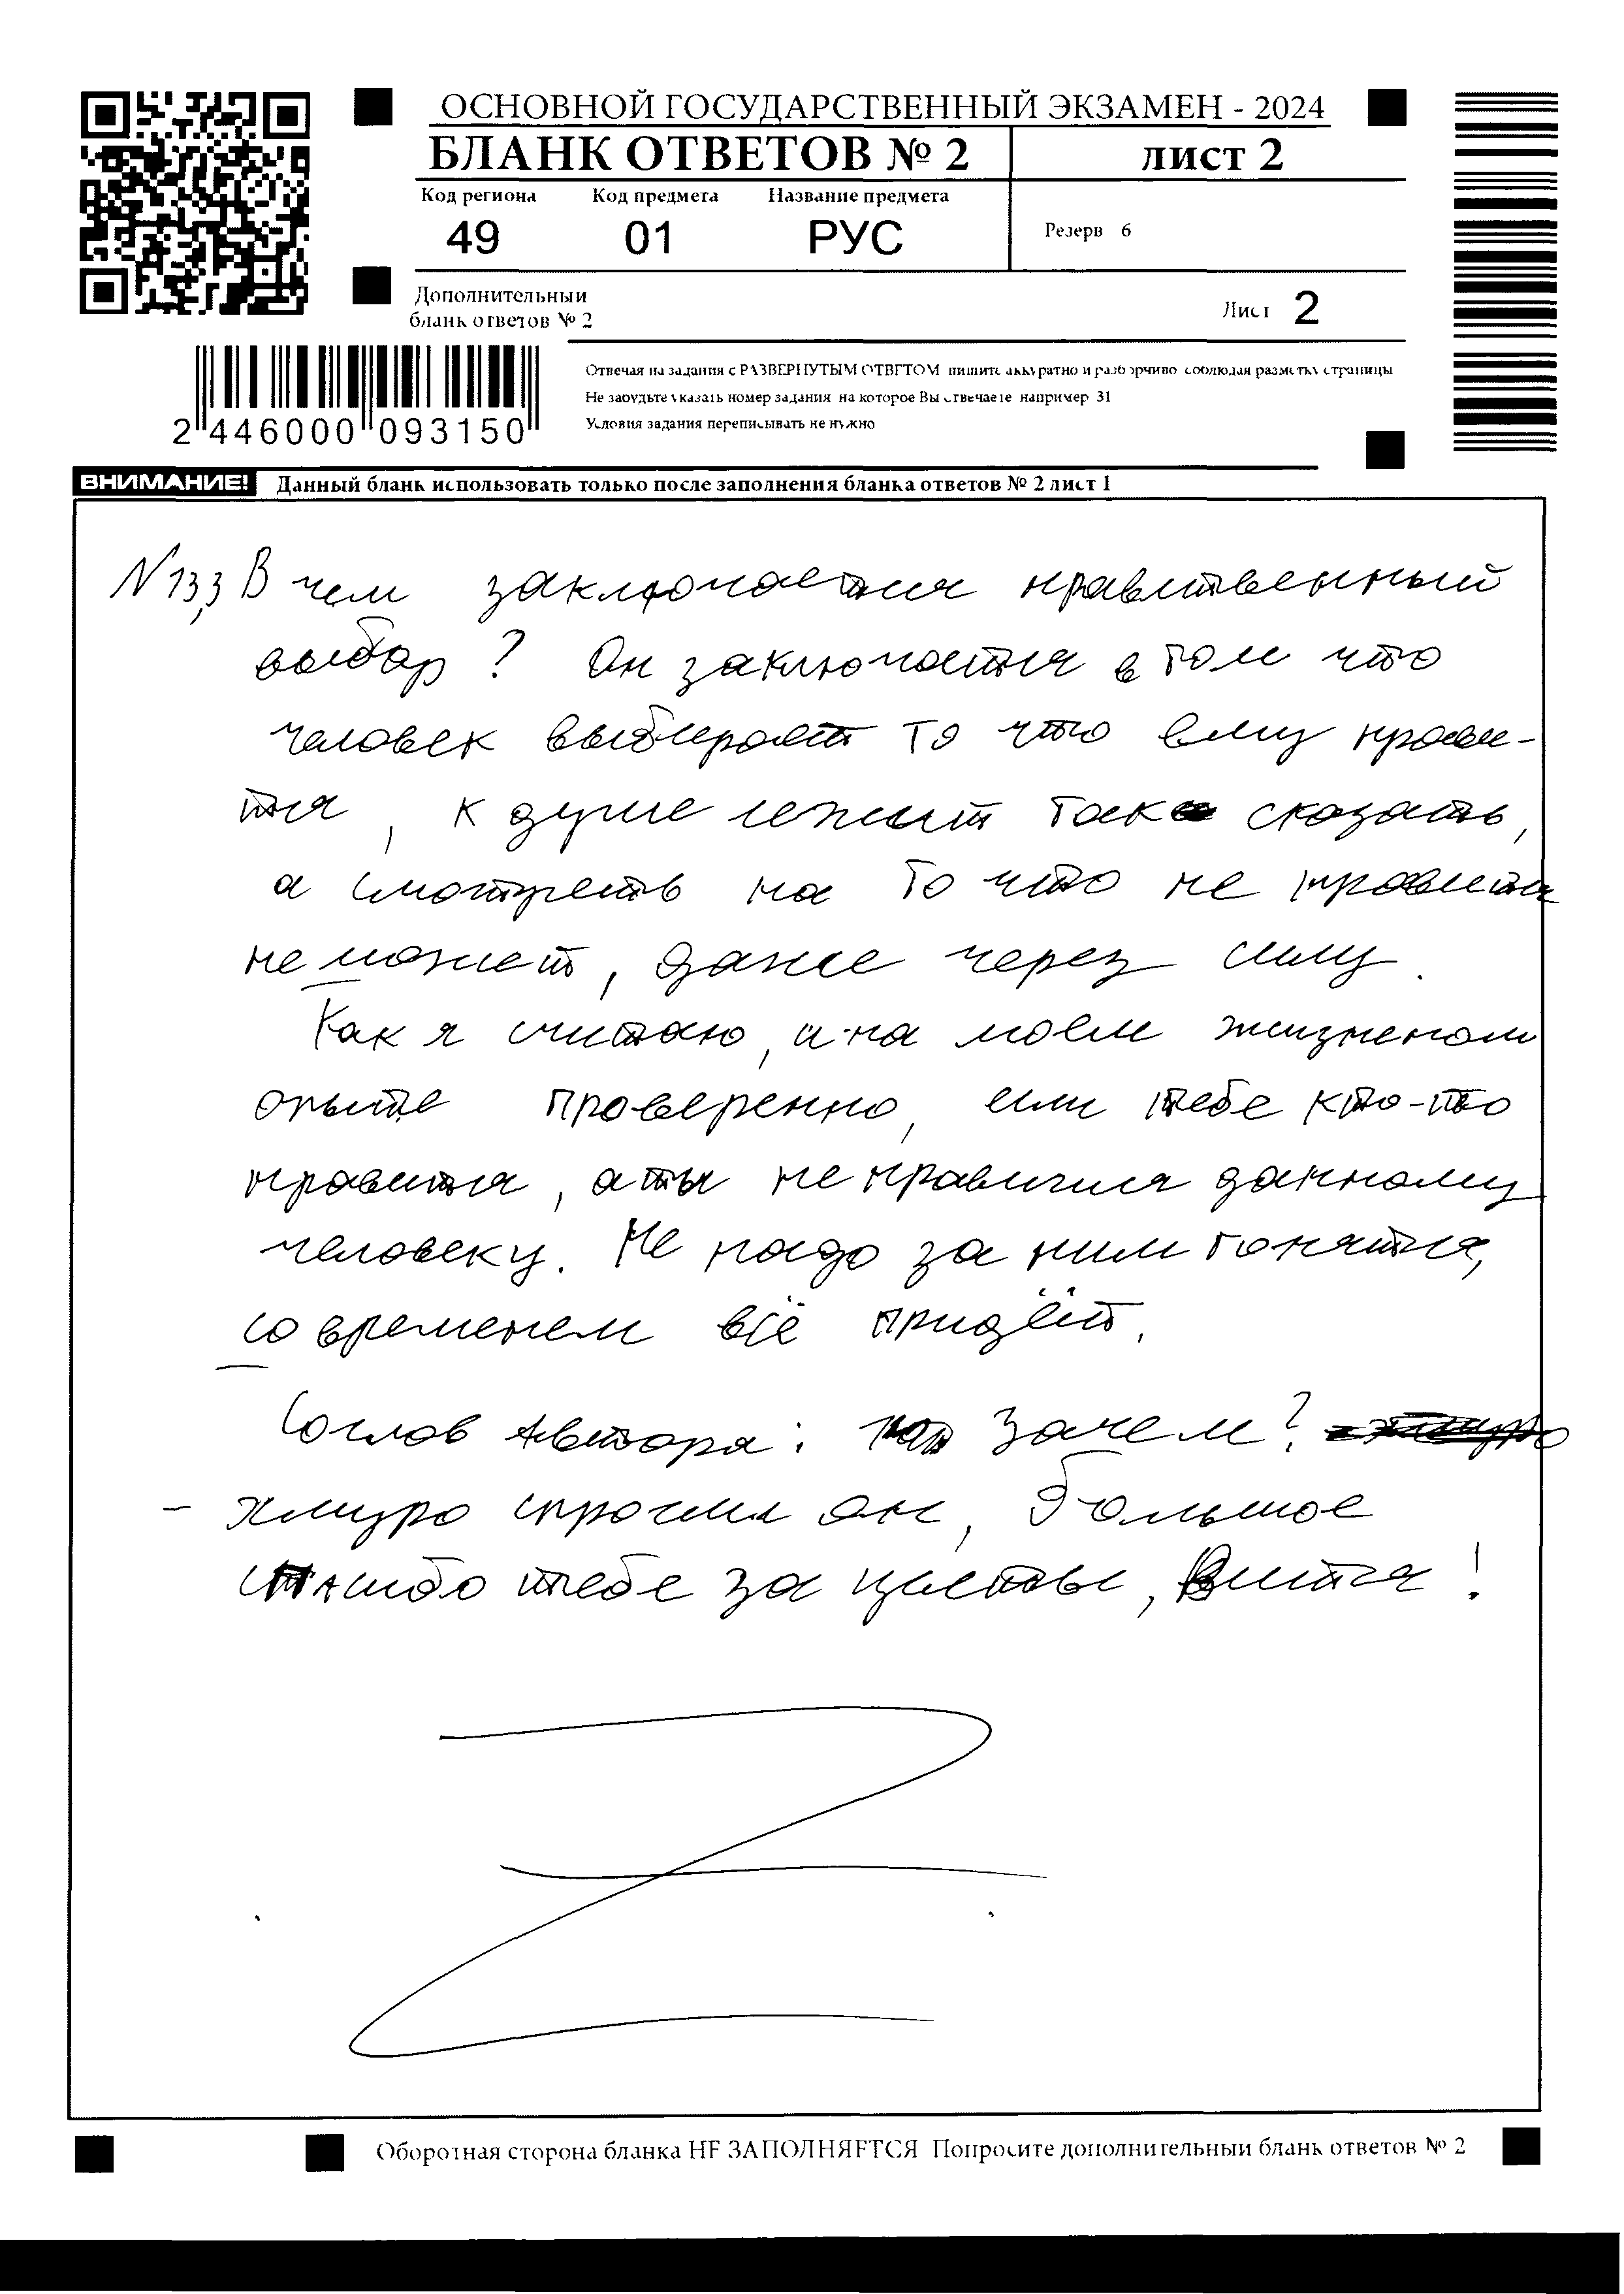 ОСНОВНОЙ ГОСУДАРСТВЕННЫЙ ЭКЗАМЕН - 2024
БЛАНК ОТВЕТОВ № 2 лист 2
Код региона Код предмета Название предмета
49 01 РУС Резерв 6
Дополнительный
бланк ответов № 2 Лист 2
Отвечая на задания с РАЗВЕРНУТЫМ ОТВЕТОМ пишите аккуратно и разборчиво соблюдая разметку страницы
Не забудьте указать номер задания на которое Вы отвечаете например 31
Условия задания переписывать не нужно
2 446000 093150
ВНИМАНИЕ! Данный бланк использовать только после заполнения бланка ответов № 2 лист 1
N 13,3 В чем заключается нравственный
выбор? Он заключается в том что
человек выбирает то что ему нрави-
тся, к душе лежит так сказать,
а смотреть на то что не нравится
не может, даже через силу.
Как я считаю, и на моем жизненом
опыте проверенно, если тебе кто-то
нравится, а ты не нравишся данному
человеку. Не надо за ним гонятся,
со временем всё придёт.
Со слов Автора: Зачем?
- хмуро спросил он, Большое
спасибо тебе за цветы, Витя!
Оборотная сторона бланка НЕ ЗАПОЛНЯЕТСЯ Попросите дополнительный бланк ответов № 2